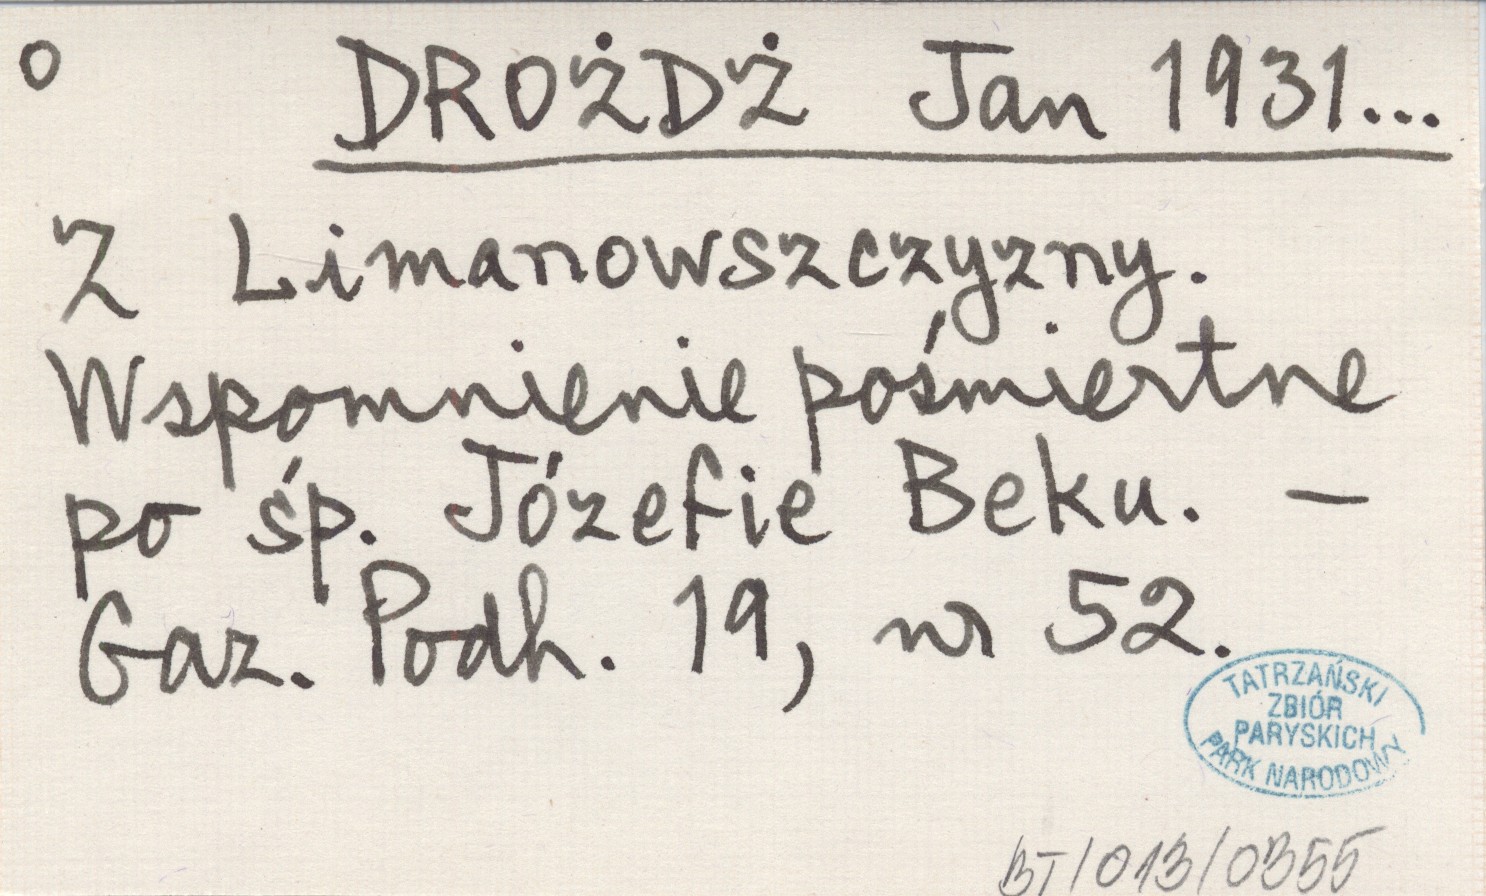 o DROŻDŻ Jan 1931...
Z Limanowszczyzny.
Wspomnienie pośmiertne
po śp. Józefie Beku. –
Gaz. Podh. 19, nr 52.
TATRZAŃSKI
ZBIÓR
PARYSKICH
PARK NARODOWY
BT/013/0355